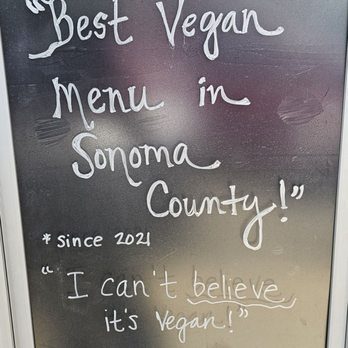 "Best Vegan
Menu in
Sonoma
County!"
* Since 2021
"I can't believe
it's Vegan!"